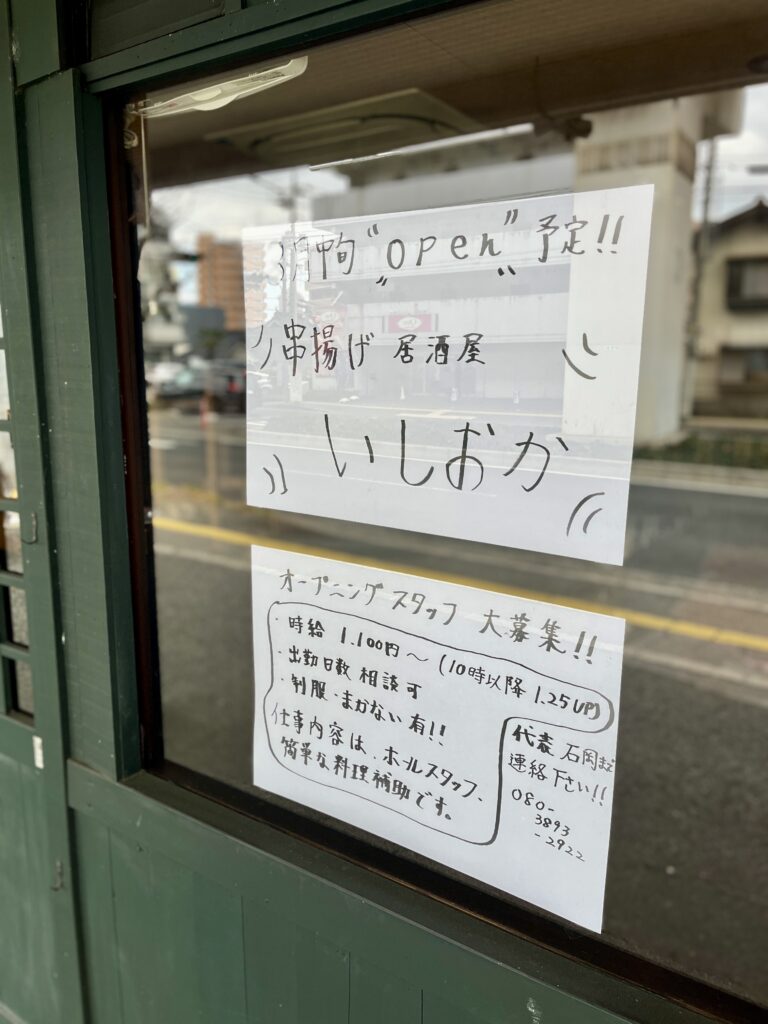 3月中旬 "open" 予定!!
串揚げ 居酒屋
いしおか
オープニングスタッフ 大募集!!
・時給 1.100円〜 (10時以降 1.25UP)
・出勤日数 相談可
・制服・まかない有!!
仕事内容は、ホールスタッフ、
簡単な料理補助です。
代表 石岡まで
連絡下さい!!
080-
3893
-2922